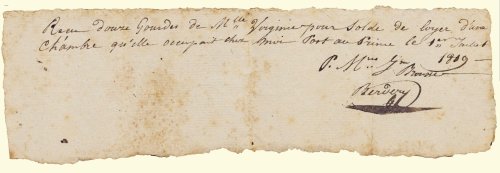 Recu douze Gourdes de Mlle Virginie pour Solde de loyer d'une
Chambre qu'elle occupait chez moi Port au Prince le 1er Juillet
1819
P. Mme
Berdery